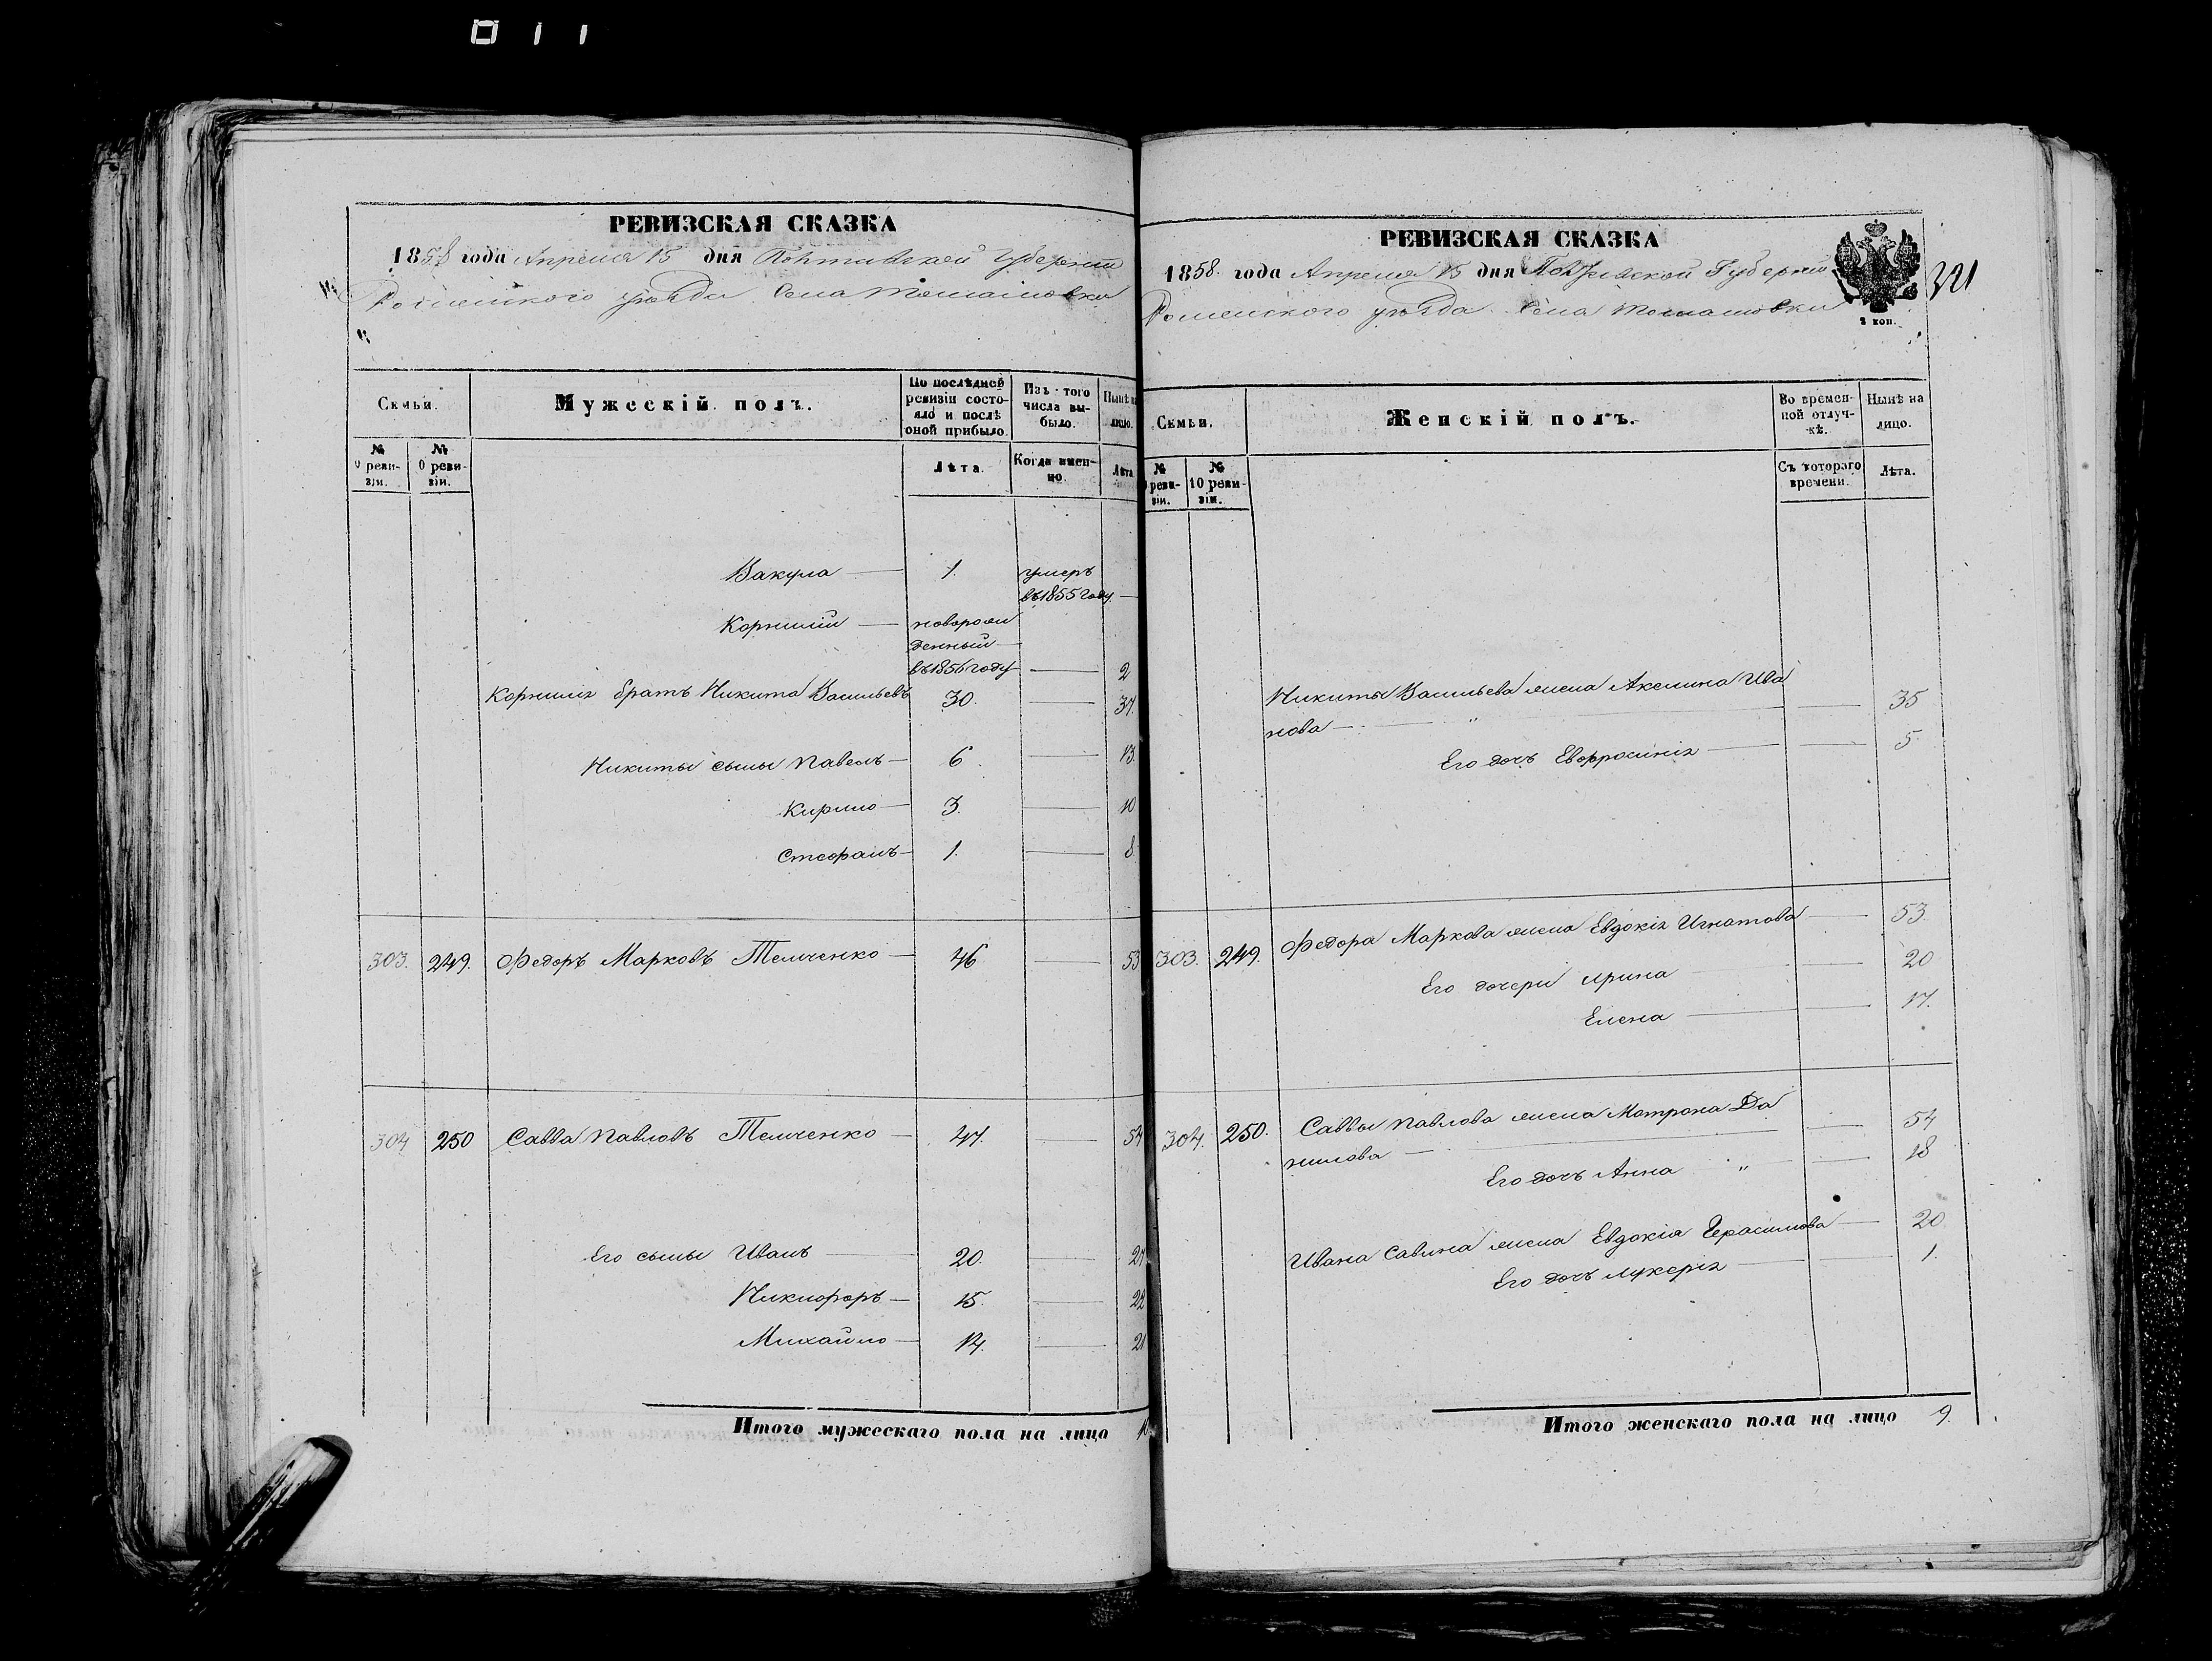 011
РЕВИЗСКАЯ СКАЗКА
1858 года Апреля 15 дня Полтавской Губернии
Роменского уѣзда Села Томашовки
Семьи.
Мужескій полъ.
По послѣдней ревизіи состояло и послѣ оной прибыло.
Изъ того числа выбыло.
Нынѣ на лицо.
№ 9 ревизіи.
№ 10 ревизіи.
Лѣта.
Когда именно.
Лѣта
Вакула — 1. умеръ
въ 1855 году —
Корнилій — новорож
денный —
въ 1856 году — 2
Корнилія братъ Никита Васильевъ 30. — 37.
Никиты сыны Павелъ — 6 — 13.
Кирило — 3. — 10
Стефанъ — 1. — 8.
303. 249. Федоръ Марковъ Темченко — 46 — 53
304 250 Савва Павловъ Темченко — 47. — 54
Его сыны Иванъ 20. — 27
Никифоръ — 15. — 22
Михайло — 14. — 21
Итого мужескаго пола на лицо 10
РЕВИЗСКАЯ СКАЗКА
1858. года Апреля 15 дня Полтавской Губерніи
Роменского уѣзда Села Томашовки
2 коп.
321
Семьи.
Женскій полъ.
Во временной отлучкѣ.
Нынѣ на лицо.
№ ревизіи.
№ 10 ревизіи.
Съ которого времени.
Лѣта.
Никиты Васильева жена Акелина Ива
нова — " — 35
Его дочь Евфросинія — 5
303. 249. Федора Маркова жена Евдокія Игнатова — 53.
Его дочери Ирина — 20
Елена — 17.
304. 250. Саввы Павлова жена Матрона Да
нилова — 54
Его дочь Анна " — 18
Ивана Савина жена Евдокія Герасимова — 20
Его дочь Лукерія — 1.
Итого женскаго пола на лицо 9.